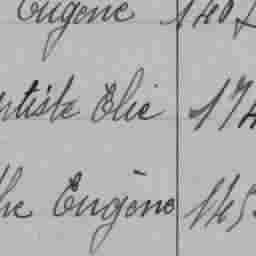 Eugène 140
tiste Elie 174
he Eugène 145